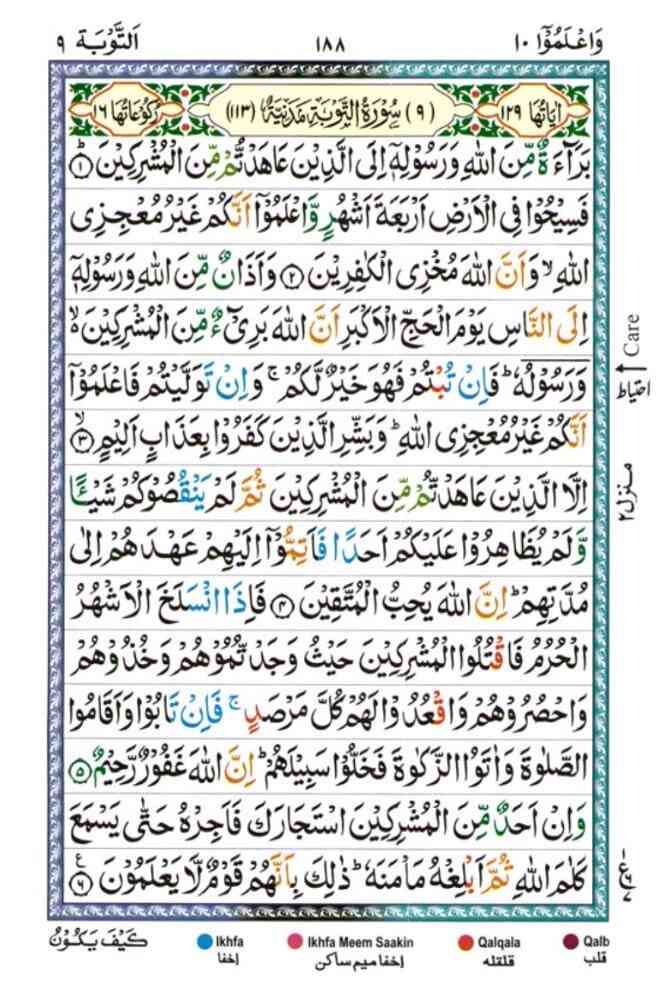 وَاعْلَمُوْٓا ١٠ ١٨٨ اَلتَّوْبَة ٩
اٰيَاتُهَا ١٢٩ (٩) سُوْرَةُ التَّوْبَةِ مَدَنِيَّةٌ (١١٣) رُكُوْعَاتُهَا ١٦
بَرَآءَةٌ مِّنَ اللّٰهِ وَرَسُوْلِهٖٓ اِلَى الَّذِيْنَ عَاهَدْتُّمْ مِّنَ الْمُشْرِكِيْنَ ؕ﴿۱﴾
فَسِيْحُوْا فِى الْاَرْضِ اَرْبَعَةَ اَشْهُرٍ وَّاعْلَمُوْٓا اَنَّكُمْ غَيْرُ مُعْجِزِى
اللّٰهِ ۙ وَاَنَّ اللّٰهَ مُخْزِى الْكٰفِرِيْنَ ﴿۲﴾ وَاَذَانٌ مِّنَ اللّٰهِ وَرَسُوْلِهٖٓ
اِلَى النَّاسِ يَوْمَ الْحَجِّ الْاَكْبَرِ اَنَّ اللّٰهَ بَرِىْٓءٌ مِّنَ الْمُشْرِكِيْنَ ۙ
وَرَسُوْلُهٗ ؕ فَاِنْ تُبْتُمْ فَهُوَ خَيْرٌ لَّكُمْ ۚ وَاِنْ تَوَلَّيْتُمْ فَاعْلَمُوْٓا
اَنَّكُمْ غَيْرُ مُعْجِزِى اللّٰهِ ؕ وَبَشِّرِ الَّذِيْنَ كَفَرُوْا بِعَذَابٍ اَلِيْمٍ ۙ﴿۳﴾
اِلَّا الَّذِيْنَ عَاهَدْتُّمْ مِّنَ الْمُشْرِكِيْنَ ثُمَّ لَمْ يَنْقُصُوْكُمْ شَيْـًٔا
وَّلَمْ يُظَاهِرُوْا عَلَيْكُمْ اَحَدًا فَاَتِمُّوْٓا اِلَيْهِمْ عَهْدَهُمْ اِلٰى
مُدَّتِهِمْ ؕ اِنَّ اللّٰهَ يُحِبُّ الْمُتَّقِيْنَ ﴿۴﴾ فَاِذَا انْسَلَخَ الْاَشْهُرُ
الْحُرُمُ فَاقْتُلُوا الْمُشْرِكِيْنَ حَيْثُ وَجَدْتُّمُوْهُمْ وَخُذُوْهُمْ
وَاحْصُرُوْهُمْ وَاقْعُدُوْا لَهُمْ كُلَّ مَرْصَدٍ ۚ فَاِنْ تَابُوْا وَاَقَامُوا
الصَّلٰوةَ وَاٰتَوُا الزَّكٰوةَ فَخَلُّوْا سَبِيْلَهُمْ ؕ اِنَّ اللّٰهَ غَفُوْرٌ رَّحِيْمٌ ﴿۵﴾
وَاِنْ اَحَدٌ مِّنَ الْمُشْرِكِيْنَ اسْتَجَارَكَ فَاَجِرْهُ حَتّٰى يَسْمَعَ
كَلٰمَ اللّٰهِ ثُمَّ اَبْلِغْهُ مَاْمَنَهٗ ؕ ذٰلِكَ بِاَنَّهُمْ قَوْمٌ لَّا يَعْلَمُوْنَ ﴿۶﴾
Care
احتیاط
منزل ۲
ع
كَيْفَ يَكُوْنُ
Ikhfa
إخفا
Ikhfa Meem Saakin
إخفا ميم ساكن
Qalqala
قلقله
Qalb
قلب